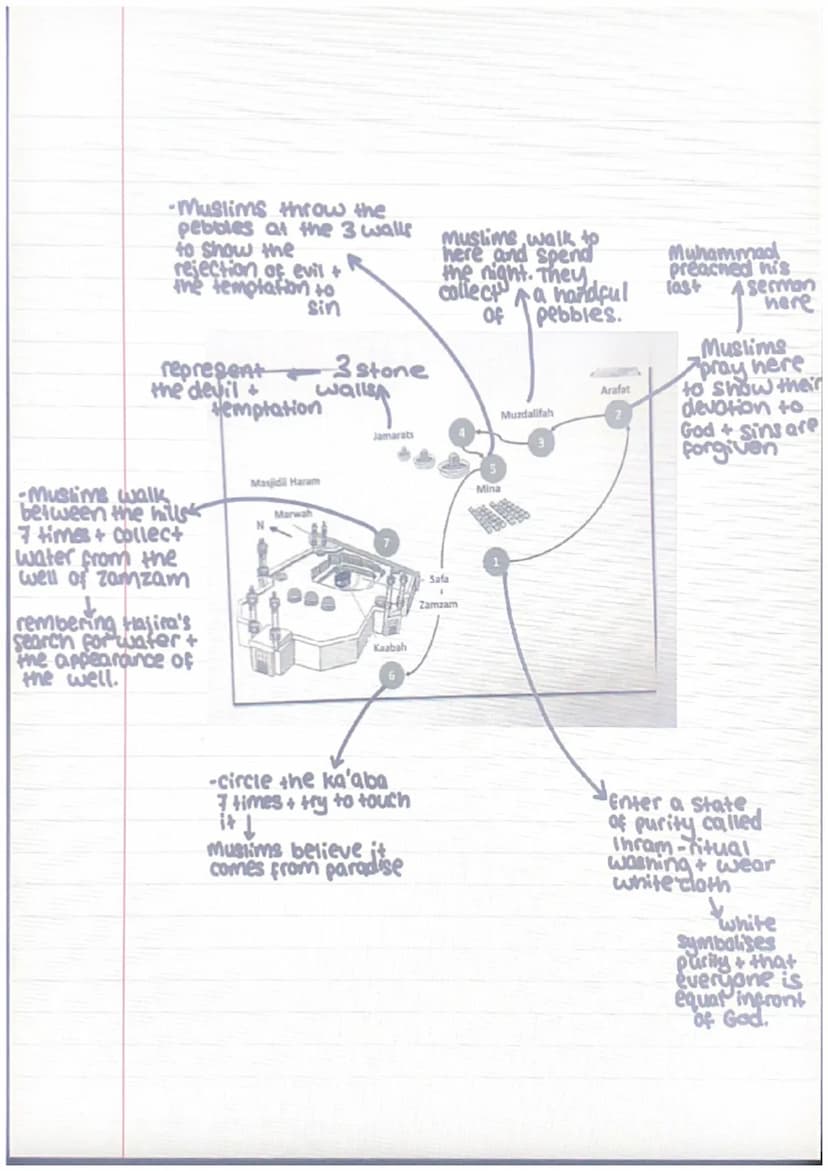 -Muslims throw the
pebbles at the 3 walls
to show the
rejection of evil +
the temptation to
sin
Muslims walk to
here and spend
the night. They
collect a handful
of pebbles.
Muhammad
preached his
last sermon
here
Muslims
pray here
to show their
devotion to
God + sins are
forgiven
3 stone
walls
represent
the devil +
temptation
Arafat
2
Muzdalifah
3
4
Jamarats
5
Mina
1
Masjidil Haram
Marwah
N
7
Safa
Zamzam
Kaabah
6
-Muslims walk
between the hills
7 times + collect
water from the
well of Zamzam
rembering Hajira's
search for water +
the appearance of
the well.
-circle the ka'aba
7 times + try to touch
it
Muslims believe it
comes from paradise
Enter a state
of purity called
Ihram-ritual
washing + wear
white cloth
white
symbolises
purity + that
everyone is
equal infront
of God.